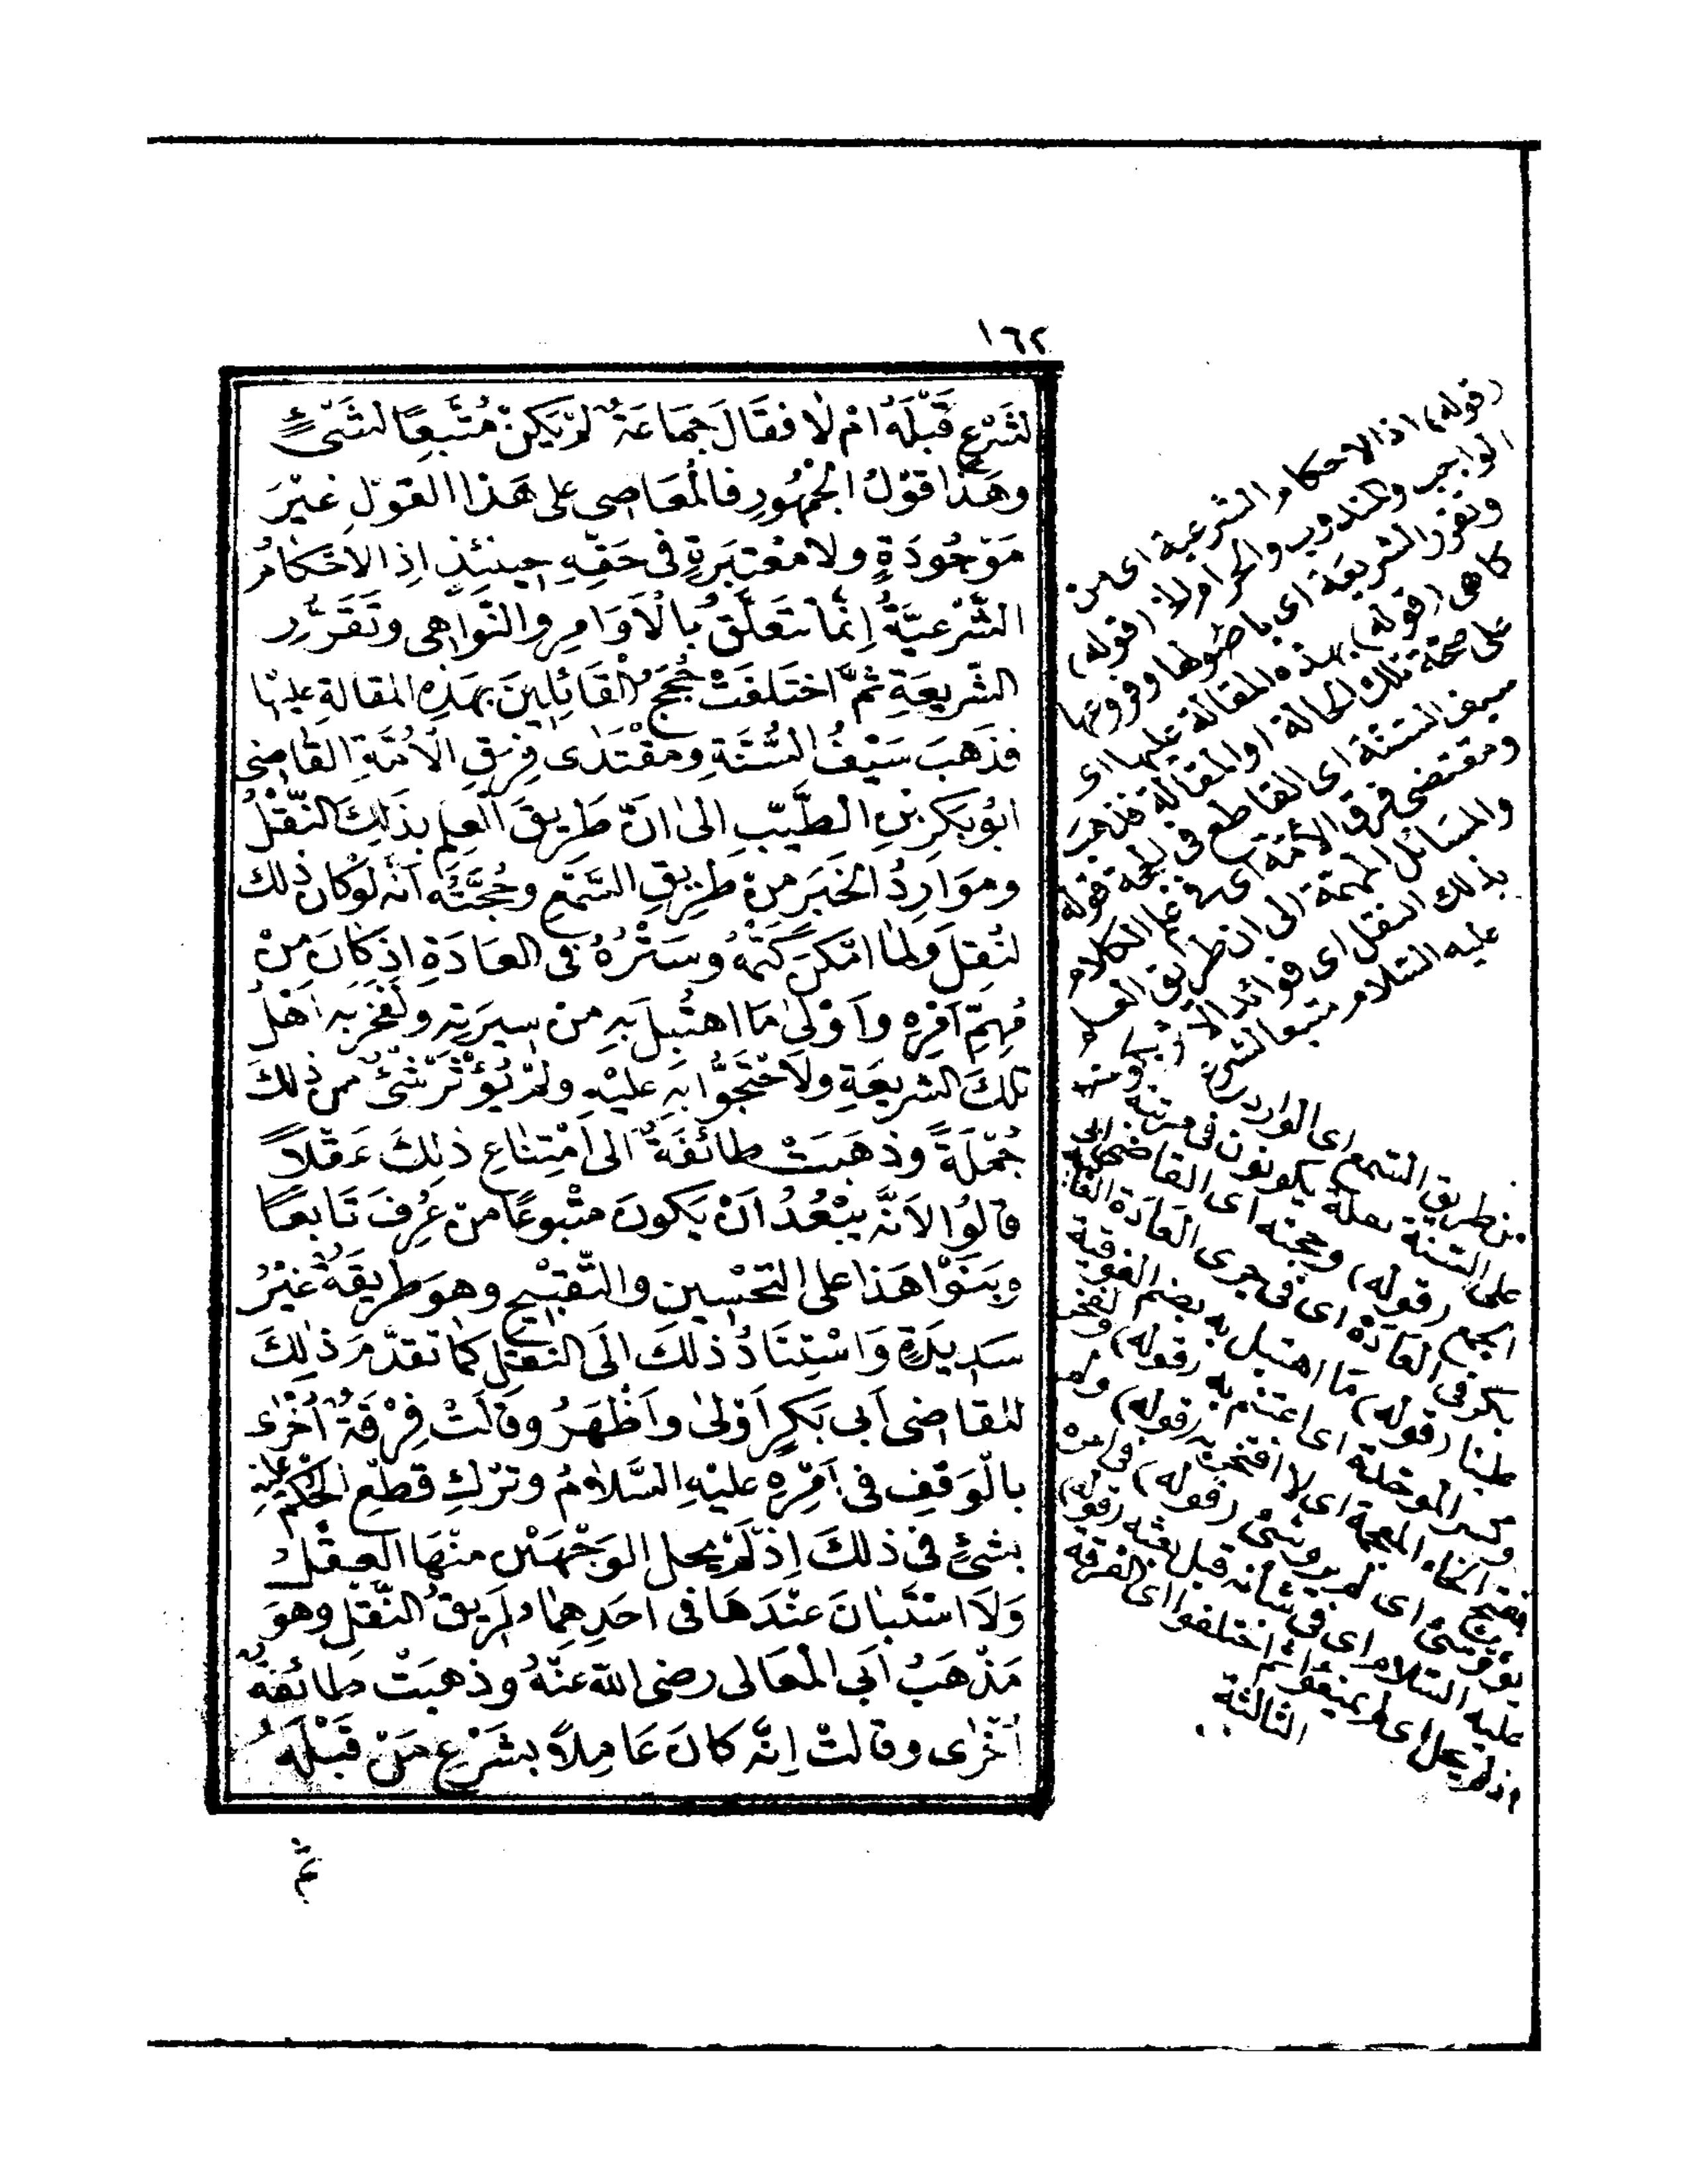 ١٦٢
لشَرْعٍ قَبْلَهُ امْ لَا فقَالَ جمَاعَةٌ لَمْ يَكُنْ مُتَّبِعًا لشَىْءٍ
وهَذا قوْلُ الجُمْهُورِ فالْمعَاصِى على هَذا القوْلِ غيْرَ
مَوْجُودَةٍ ولا مُعْتبَرَةٍ فى حَقِّهِ حِينَئذٍ اذِ الاحْكامُ
الشَّرْعيَّةُ إنمَّا تتعَلَّقُ بالْاوَامِرِ والنَّواهِى وتَقَرُّرِ
الشَّريعَةِ ثمَّ اختَلفَتْ حُجَجُ القَائِلينَ بهَذِهِ المقالةِ عليْها
فذَهَبَ سَيْفُ السُّنَّةِ ومقْتَدَى فِرَقِ الْامَّةِ القَاضِى
ابُو بَكرِ بنِ الطَّيّبِ الىٰ انَّ طَرِيقَ العِلمِ بذَلِكَ النَّقْلُ
ومَوَارِدُ الخَبَرِ مِنْ طَرِيقِ السَّمْعِ وحُجَّتُهُ أنَّهُ لَوْ كانَ ذلك
لنُقِلَ ولمَا امْكنَ كَتْمُهُ وسَتْرُهُ فى العَادَةِ اذ كَانَ مِنْ
مُهِمِّ أمْرِهِ وأوْلىٰ مَا اهتُبِلَ بَهِ مِنْ سِيرَتِهِ ولفَخَرَ بِهِ أهْلُ
تلكَ الشرِيعَةِ ولَاحْتَجُّوا بهِ عليْهِ ولمْ يُؤْثَرْ شَىْءٌ مِنْ ذٰلكَ
جُمْلَةً وذهَبَتْ طائفَةٌ الى امْتِنَاعِ ذٰلِكَ عَقْلاً
قالُوا لاَنَّهُ يبْعُدُ انْ يَكونَ متْبوعًا مَنْ عُرِفَ تَابِعًا
وبَنَوْا هَذا على التحْسِينِ والتَّقبْيحِ وهىَ طرِيقَةٌ غيْرُ
سَدِيدَةٍ وَاسْتِنَادُ ذلكَ الَى النقْلِ كمَا تقدَّمَ ذٰلِكَ
للقاضِى أبى بَكرٍ أوْلىٰ وأظْهَرُ وقالَتْ فِرْقَةٌ أخْرٰى
بالْوَقفِ فى أمْرِهِ عليْهِ السَّلامُ وتَرْكِ قطْعِ الحُكْمِ عليْهِ
بشىْءٍ فى ذلكَ اِذْ لَمْ يحلِ الوَجْهَيْن منْهَا العقْلُ
وَلَا اسْتَبَانَ عنْدَهَا فى احَدِهِما طَرِيقُ النَّقْلِ وهوَ
مَذْهَبُ أبى المْعَالى رضى اللّٰه عنْهُ وذهَبَتْ طائفَةٌ
أخْرٰى وقالتْ اِنَّهُ كانَ عَامِلاً بشَرْعِ مَنْ قَبْلَهُ
ثم
(قوله) اذ الاحكام الشرعية اى من
الواجب والمندوب والحرام (قوله)
وتقرر الشريعة اى باصولها وفروعها
كما هى (قوله) بهذه المقالة عليها اى
على صحة تلك الحالة او المقالة فذهب
سيف السنة اى القاطع فى قوله
ومقتضى فرق الائمة اى الكلام
والمسائل المهمة الى ان طريق العلم
بذلك النقل اى فوائد
عليه السلام متبعا لشرع
من طريق السمع اى الوارد
على السنة نقلة يكونون فى مرتبة
الجمع (قوله) وحجته اى القاضى ابى
بكر فى العادة اى فى جرى العادة
(قوله) ما اهتبل به بضم الفوقية
وكسر الموحدة اى اعتنم به (قوله) ولفخر
بفتح الخاء المعجمة اى لافتخر به (قوله) ولم
يؤثر شئ اى لم يرو شئ (قوله) فى امره
عليه السلام اى فى شأنه قبل بعثه (قوله)
اذ لم يحل اى لم يمنع اى الفرقة
الثالثة